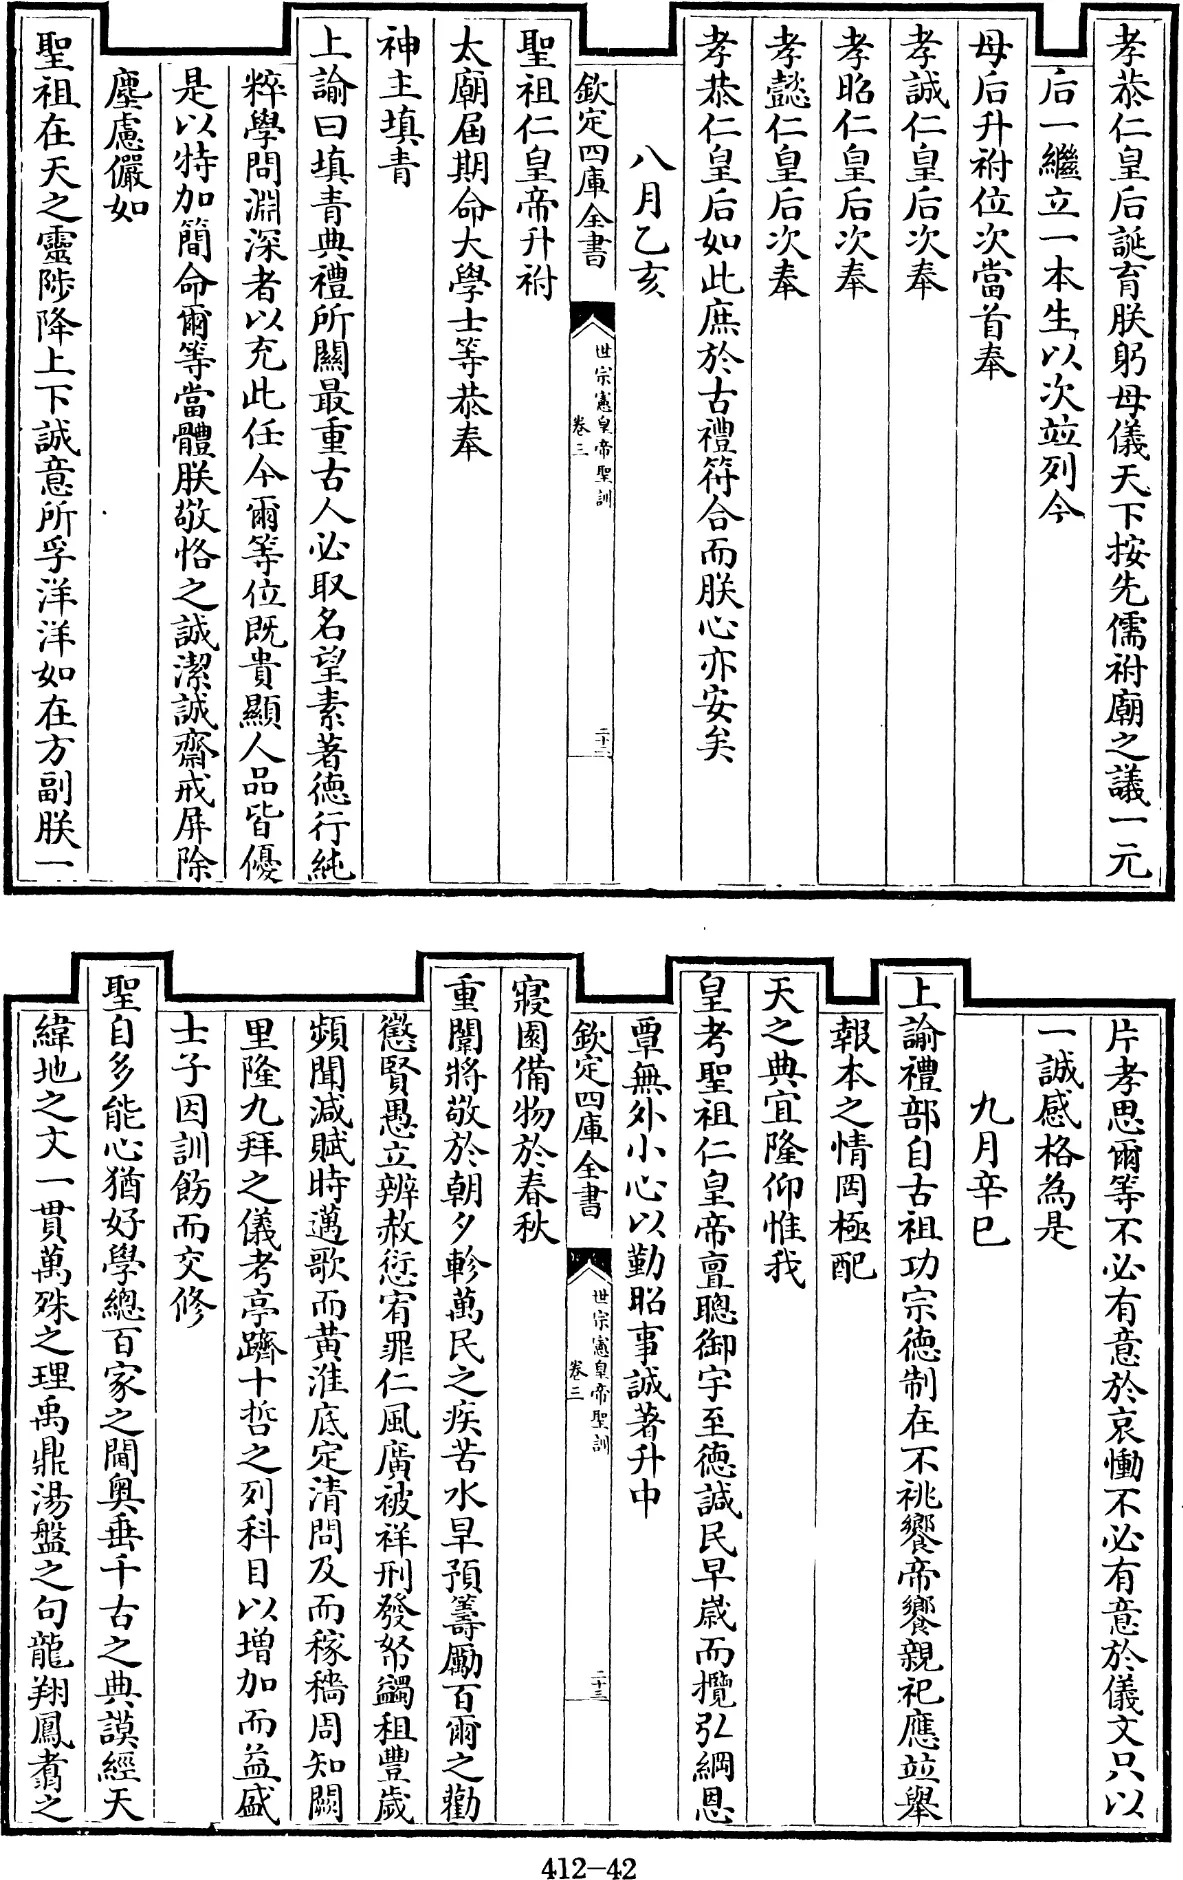 孝恭仁皇后誕育朕躬母儀天下按先儒祔廟之議一元
后一繼立一本生以次竝列今
母后升祔位次當首奉
孝誠仁皇后次奉
孝昭仁皇后次奉
孝懿仁皇后次奉
孝恭仁皇后如此庶於古禮符合而朕心亦安矣
八月乙亥
欽定四庫全書
世宗憲皇帝聖訓
卷三
二十二
聖祖仁皇帝升祔
太廟屆期命大學士等恭奉
神主填青
上諭曰填青典禮所關最重古人必取名望素著德行純
粹學問淵深者以充此任今爾等位既貴顯人品皆優
是以特加簡命爾等當體朕敬恪之誠潔誠齋戒屏除
塵慮儼如
聖祖在天之靈陟降上下誠意所孚洋洋如在方副朕一
片孝思爾等不必有意於哀慟不必有意於儀文只以
一誠感格為是
九月辛巳
上諭禮部自古祖功宗德制在不祧饗帝饗親祀應竝舉
報本之情罔極配
天之典宜隆仰惟我
皇考聖祖仁皇帝亶聰御宇至德諴民早歲而攬弘綱恩
覃無外小心以勤昭事誠著升中
欽定四庫全書
世宗憲皇帝聖訓
卷三
二十三
寢園備物於春秋
重闈將敬於朝夕軫萬民之疾苦水旱預籌勵百爾之勸
懲賢愚立辨赦愆宥罪仁風廣被祥刑發帑蠲租豐歲
頻聞減賦時邁歌而黃淮底定清問及而稼穡周知闕
里隆九拜之儀考亭躋十哲之列科目以增加而益盛
士子因訓飭而交修
聖自多能心猶好學總百家之閫奧垂千古之典謨經天
緯地之文一貫萬殊之理禹鼎湯盤之句龍翔鳳翥之
412-42